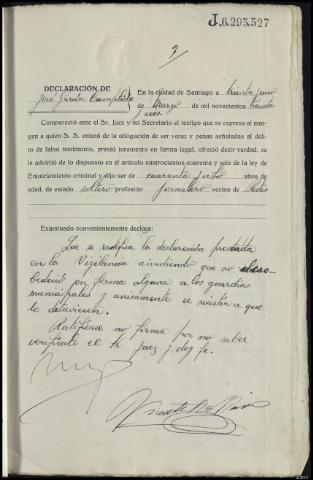 J.6.295.527
DECLARACIÓN DE
José García
En la ciudad de Santiago a treinta y uno
de Marzo de mil novecientos treinta
Compareció ante el Sr. Juez y mi Secretario el testigo que se expresa al mar-
gen a quien S. S. enteró de la obligación de ser veraz y penas señaladas al deli-
to de falso testimonio, prestó juramento en forma legal, ofreció decir verdad, se
le advirtió de lo dispuesto en el artículo cuatrocientos cuarenta y seis de la ley de
Enjuiciamiento criminal y dijo ser de cuarenta y ocho años de
edad, de estado soltero profesión jornalero vecino de
Examinado convenientemente declara:
Que se ratifica la declaración prestada
en la Vigilancia añadiendo que no deso-
bedeció en forma alguna a los guardias
municipales y unicamente se resistía a que
lo detuviesen.
Ratifícase no firma por no saber
verifícalo el Sr. Juez y doy fe.